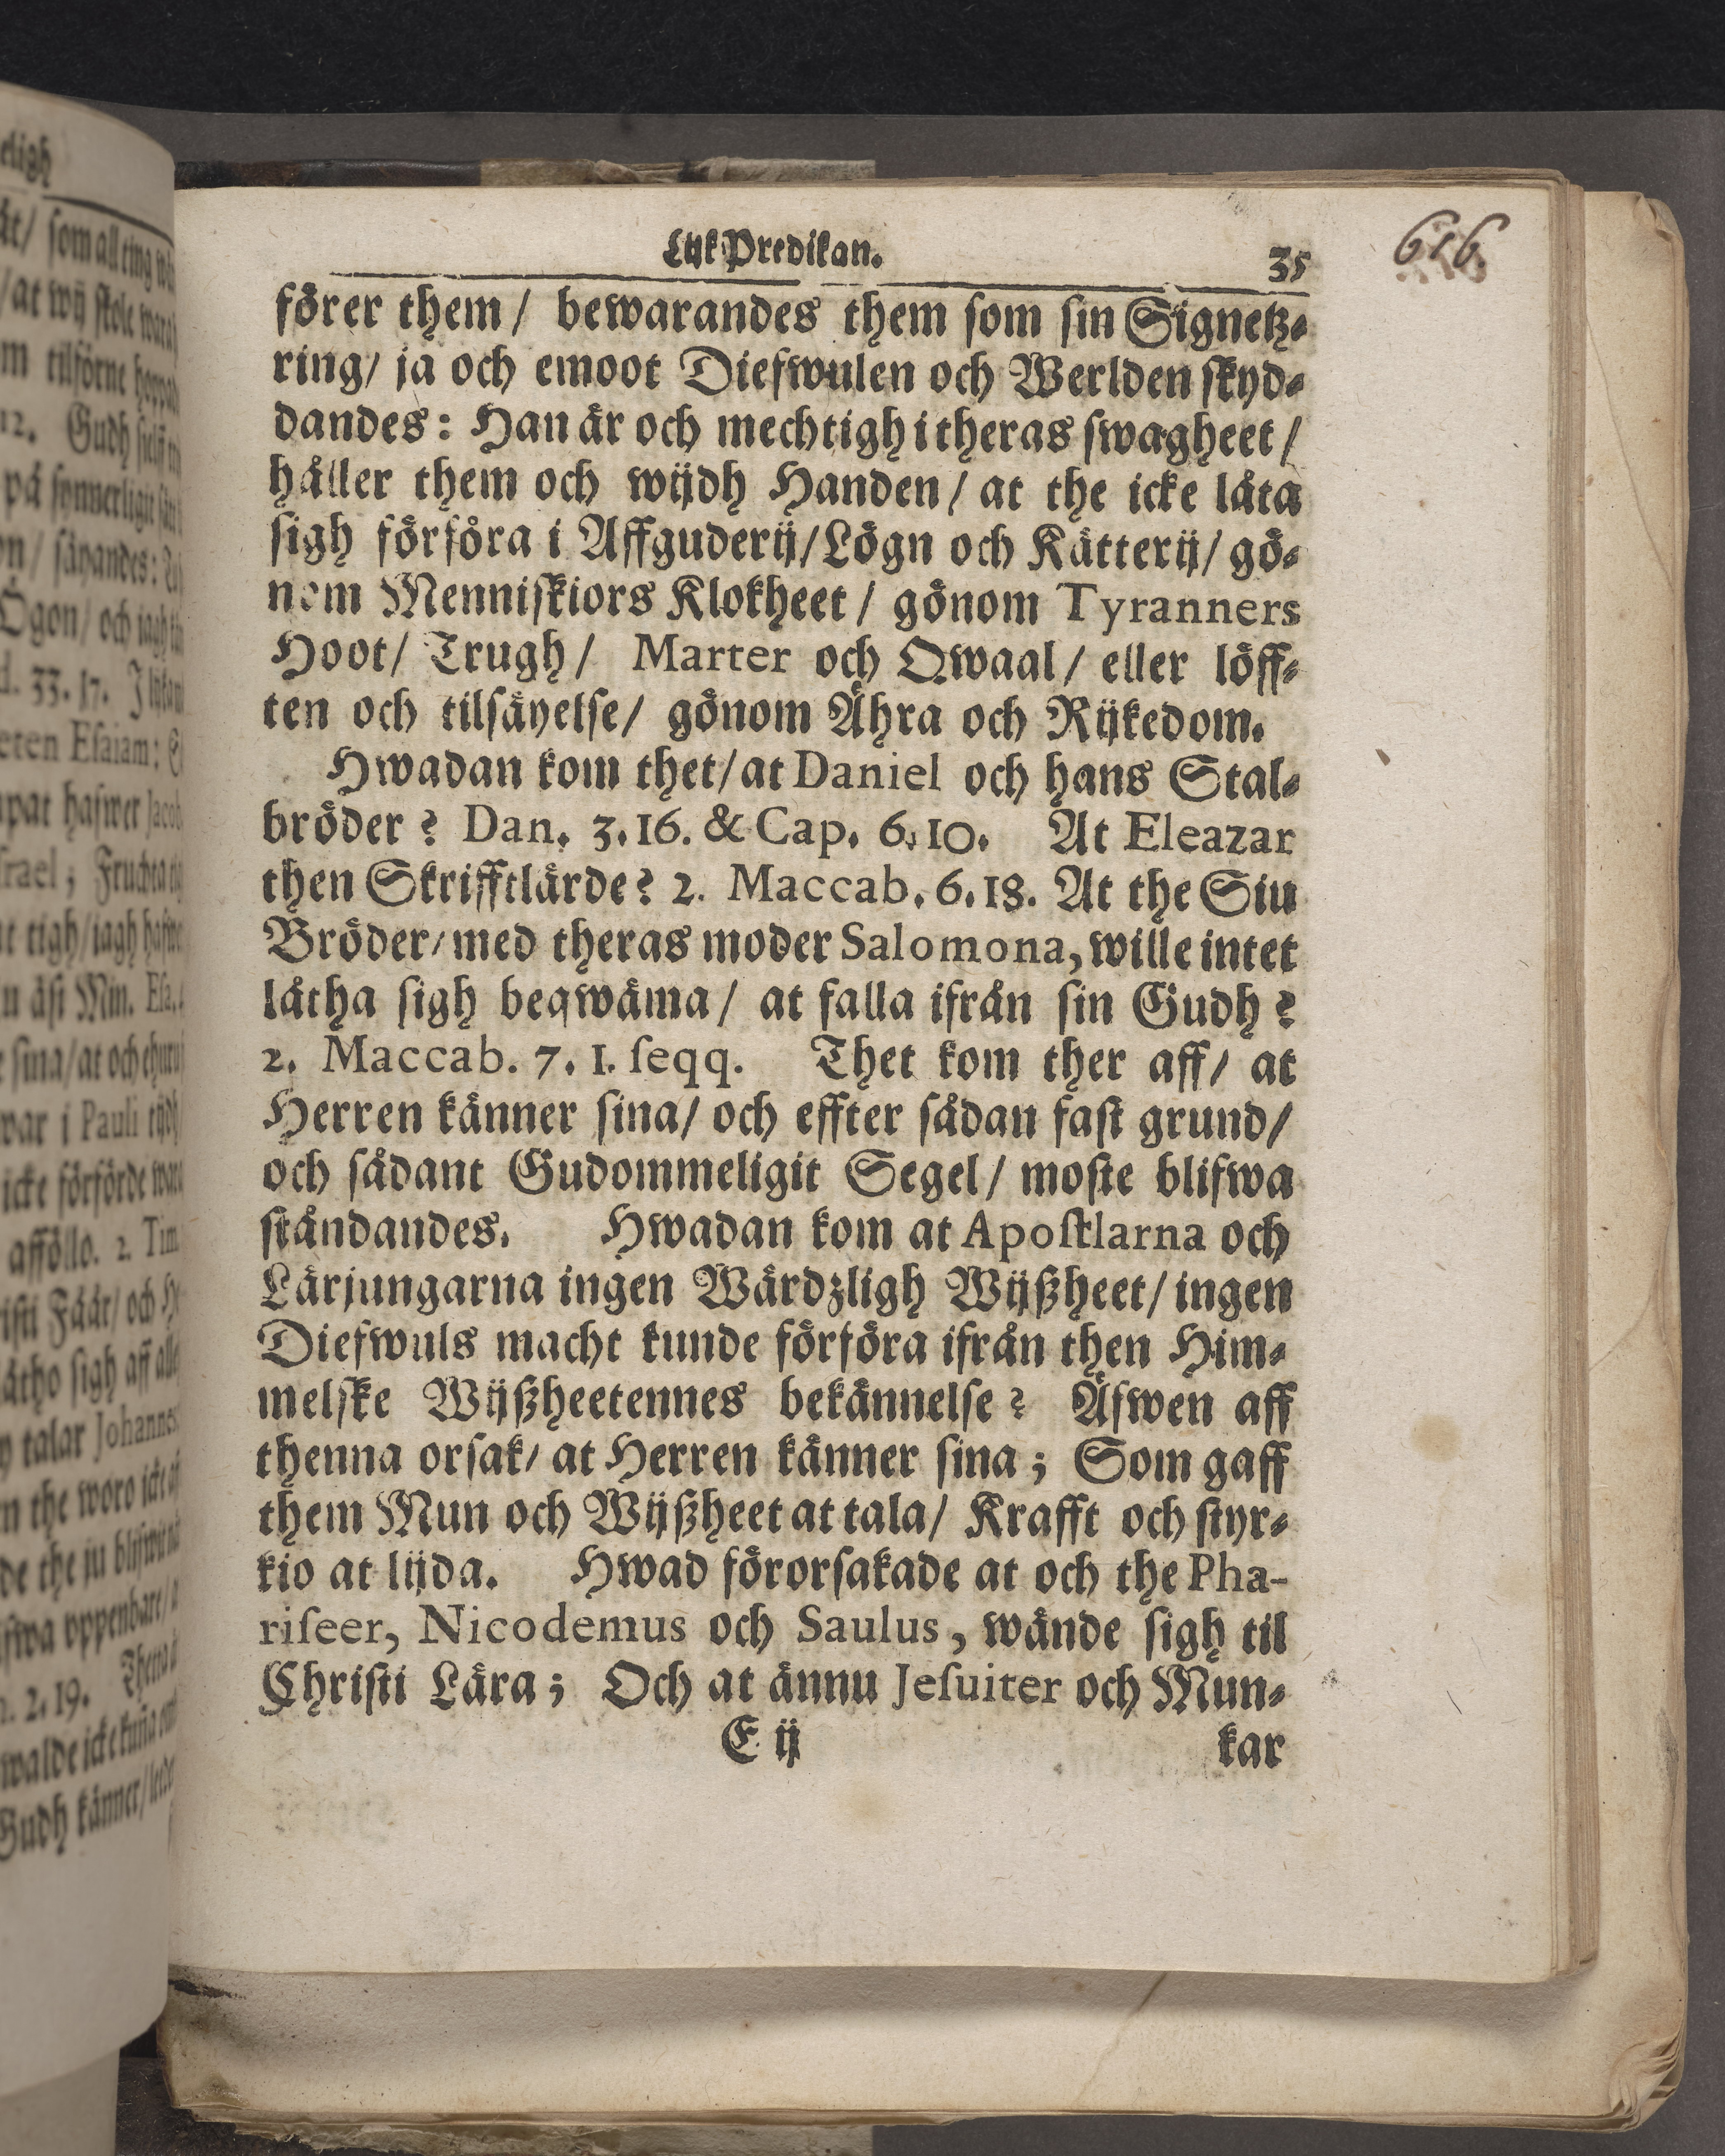 LijkPredikan.
35
616
förer them / bewarandes them som sin Signetz-
ring / ja och emoot Diefwulen och Werlden skyd-
dandes: Han är och mechtigh i theras swagheet /
håller them och wijdh Handen / at the icke låta
sigh förföra i Affguderij / Lögn och Kätterij / gö-
nom Menniskiors Klokheet / gönom Tyranners
Hoot / Trugh / Marter och Qwaal / eller löff-
ten och tilsäyelse / gönom Ähra och Rijkedom.
Hwadan kom thet / at Daniel och hans Stal-
bröder? Dan. 3. 16. & Cap. 6. 10. At Eleazar
then Skrifftlärde? 2. Maccab. 6. 18. At the Siu
Bröder / med theras moder Salomona, wille intet
låtha sigh beqwäma / at falla ifrån sin Gudh?
2. Maccab. 7. 1. seqq. Thet kom ther aff / at
Herren känner sina / och effter sådan fast grund /
och sådant Gudommeligit Segel / moste blifwa
ståndandes. Hwadan kom at Apostlarna och
Lärjungarna ingen Wärdzligh Wijßheet / ingen
Diefwuls macht kunde förföra ifrån then Him-
melske Wijßheetennes bekännelse? Äfwen aff
thenna orsak / at Herren känner sina; Som gaff
them Mun och Wijßheet at tala / Krafft och styr-
kio at lijda. Hwad förorsakade at och the Pha-
riseer, Nicodemus och Saulus, wände sigh til
Christi Lära; Och at ännu Jesuiter och Mun-
E ij
kar